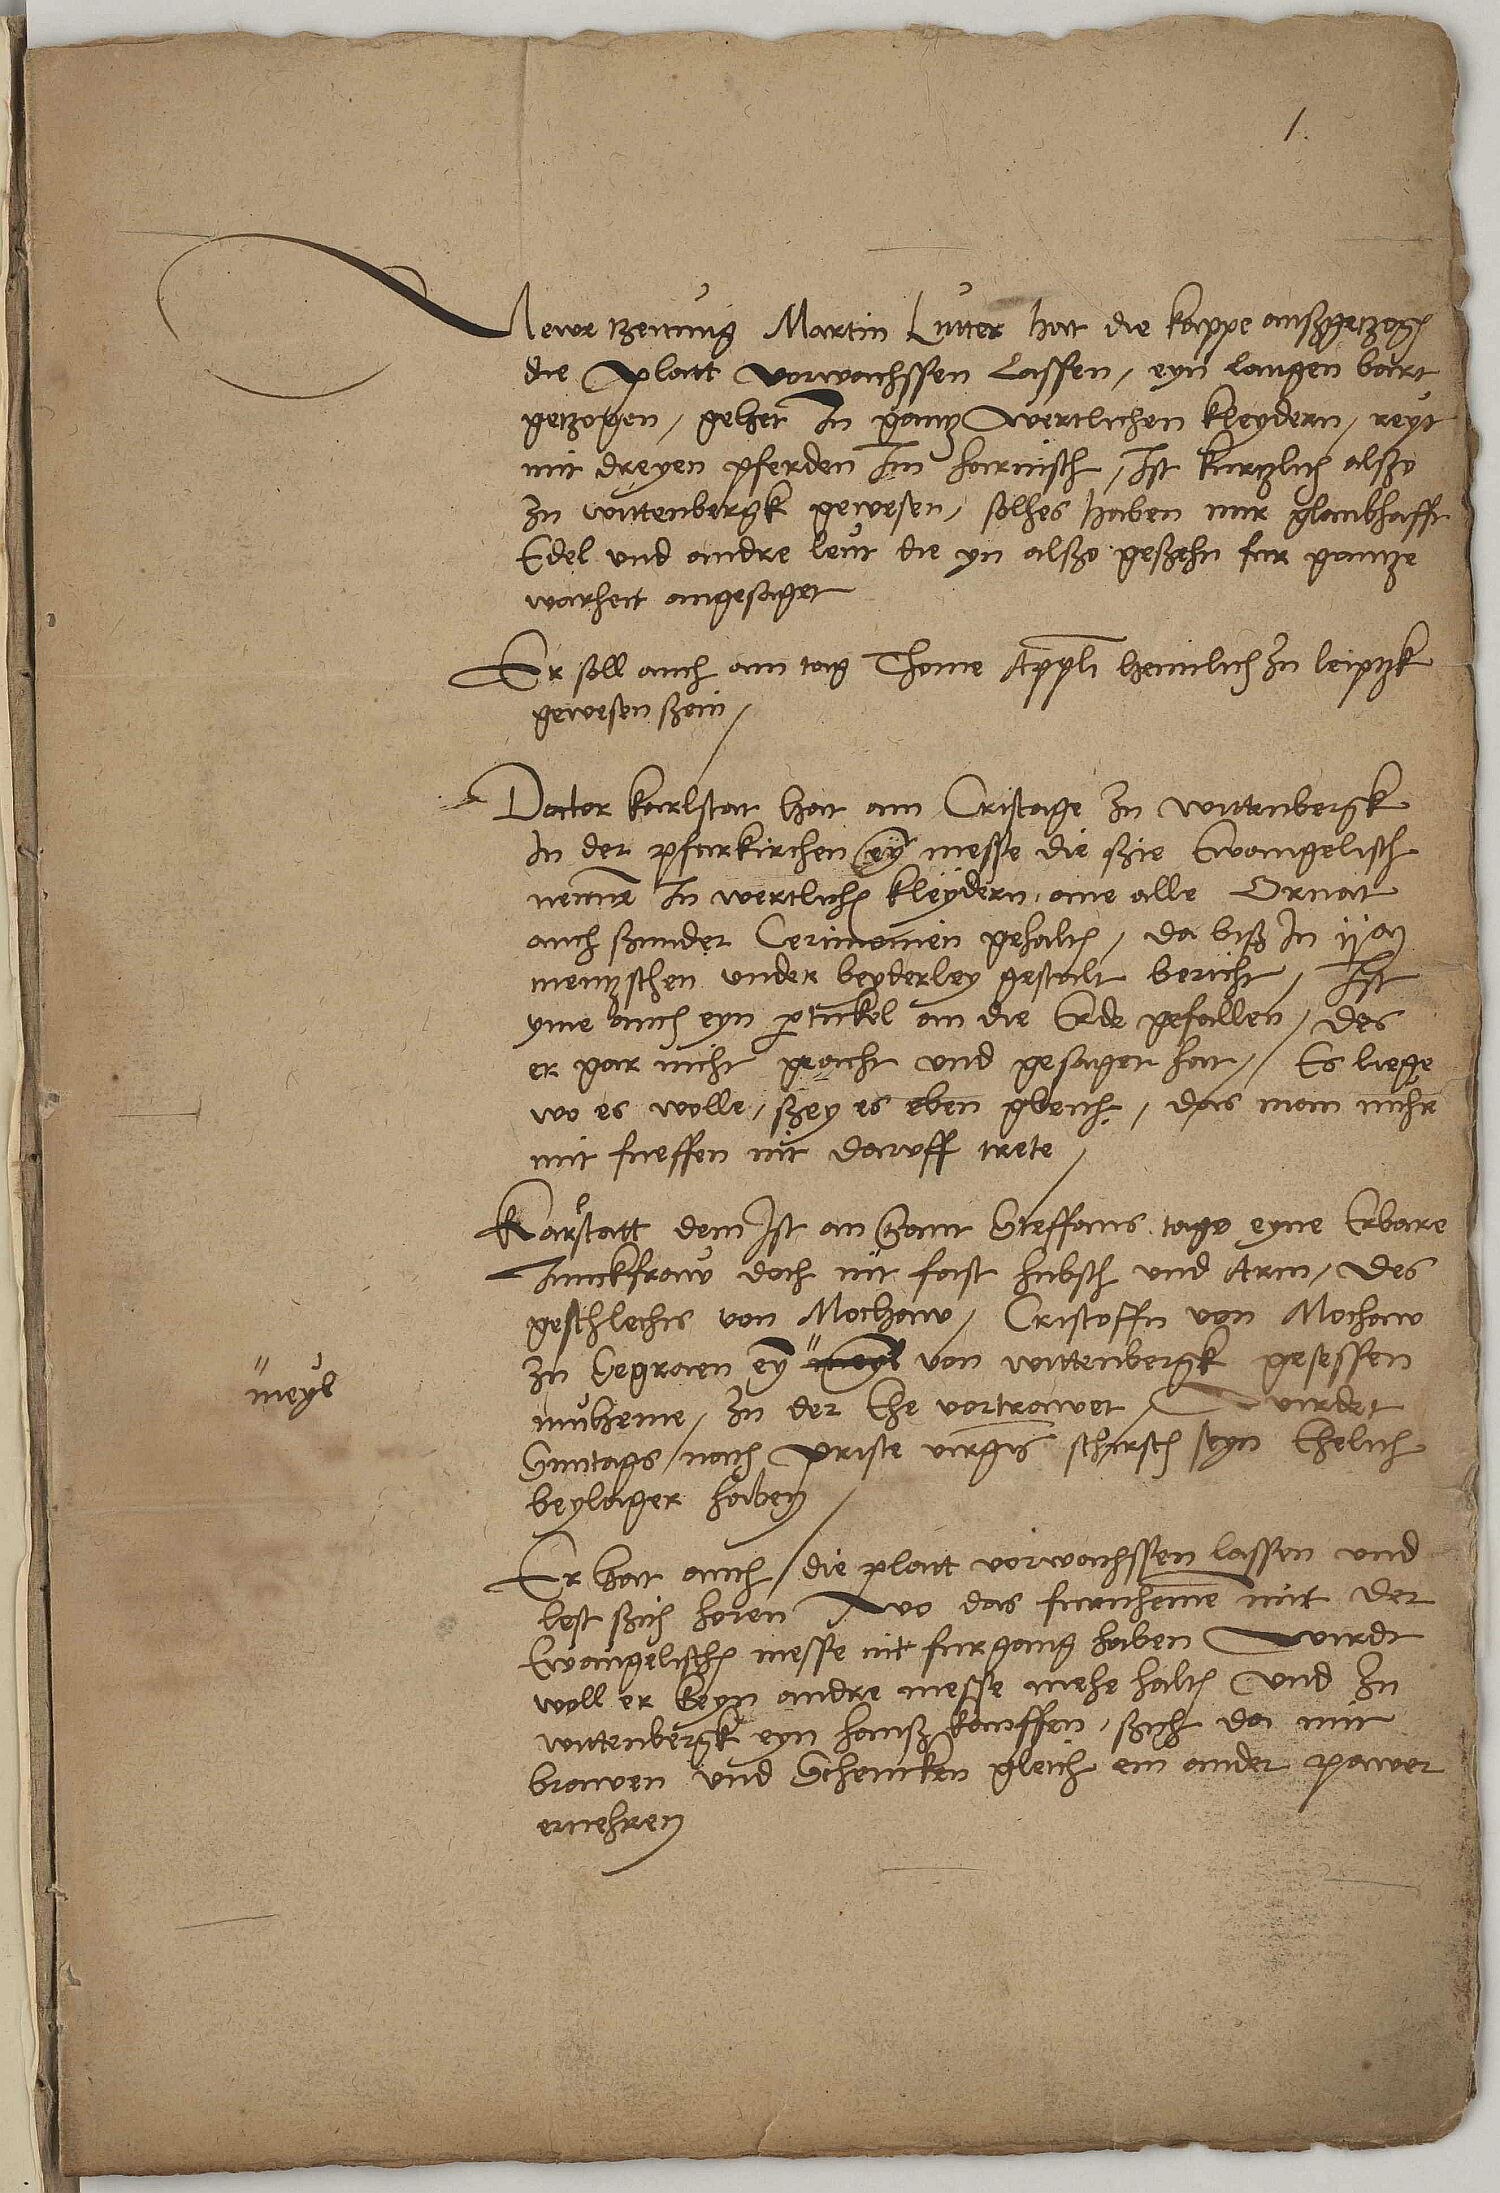 1.
Newe tzeittung Martin Lutter hat die kappe außgetzogen
die platt vorwachssen lassen, eyn langen bart
getzogen, gehet In gantz wertlichen kleydern, reyt
mit dreyen pferden Im harnisch, Ist kurtzlich alßo
zu wittenbergk gewesen, solhes haben mir glaubhafft
Edel vnd andre leut die yn alßo geßehn fur gantze
warheit angesaget
Er soll auch am tag Thome Appli heimlich zu leiptzk
gewesen ßein,
Doctor karlstat hat am Cristage zu wittenbergk
In der pfarkirchen ey messe die ßie Ewangelisch
nennen In wertlichen kleydern, ane alle Ornat
auch ßunder Cerimonien gehalten, da biß In
mentzschen vnder beyderley gestalt bericht, Ist
yme auch eyn partickel an die Erde gefallen, des
er gar nicht geacht vnd gesaget hat, Es liege
wo es wolle, ßey es eben gleich, das man nuhr
mit fuessen nit daruff trete,
Karlstatt dem Ist an ßant Steffans tage eyne Erbare
Junckfraw doch nit fast hubsch vnd Arm, des
geschlechts von Mochaw, Cristoffn von Mochaw
zu Segraen ey " meyl von wittenbergk gesessen
muheme, zu der Ehe vortrawet, Wirdet
Suntags nach priste virgis schirsten seyn Ehelich
beylager haben,
" meyl
Er hat auch die platt vorwachssen lassen vnd
lest ßich horen Wo das furnhemen mit der
Ewangelischen messe nit furgang haben Wirdt
woll er keyn andre messe mehe halten Vnd zu
wittenbergk eyn hauß kauffen, ßich da mit
brawen vnd Schencken gleich ein ander pawer
ernehren